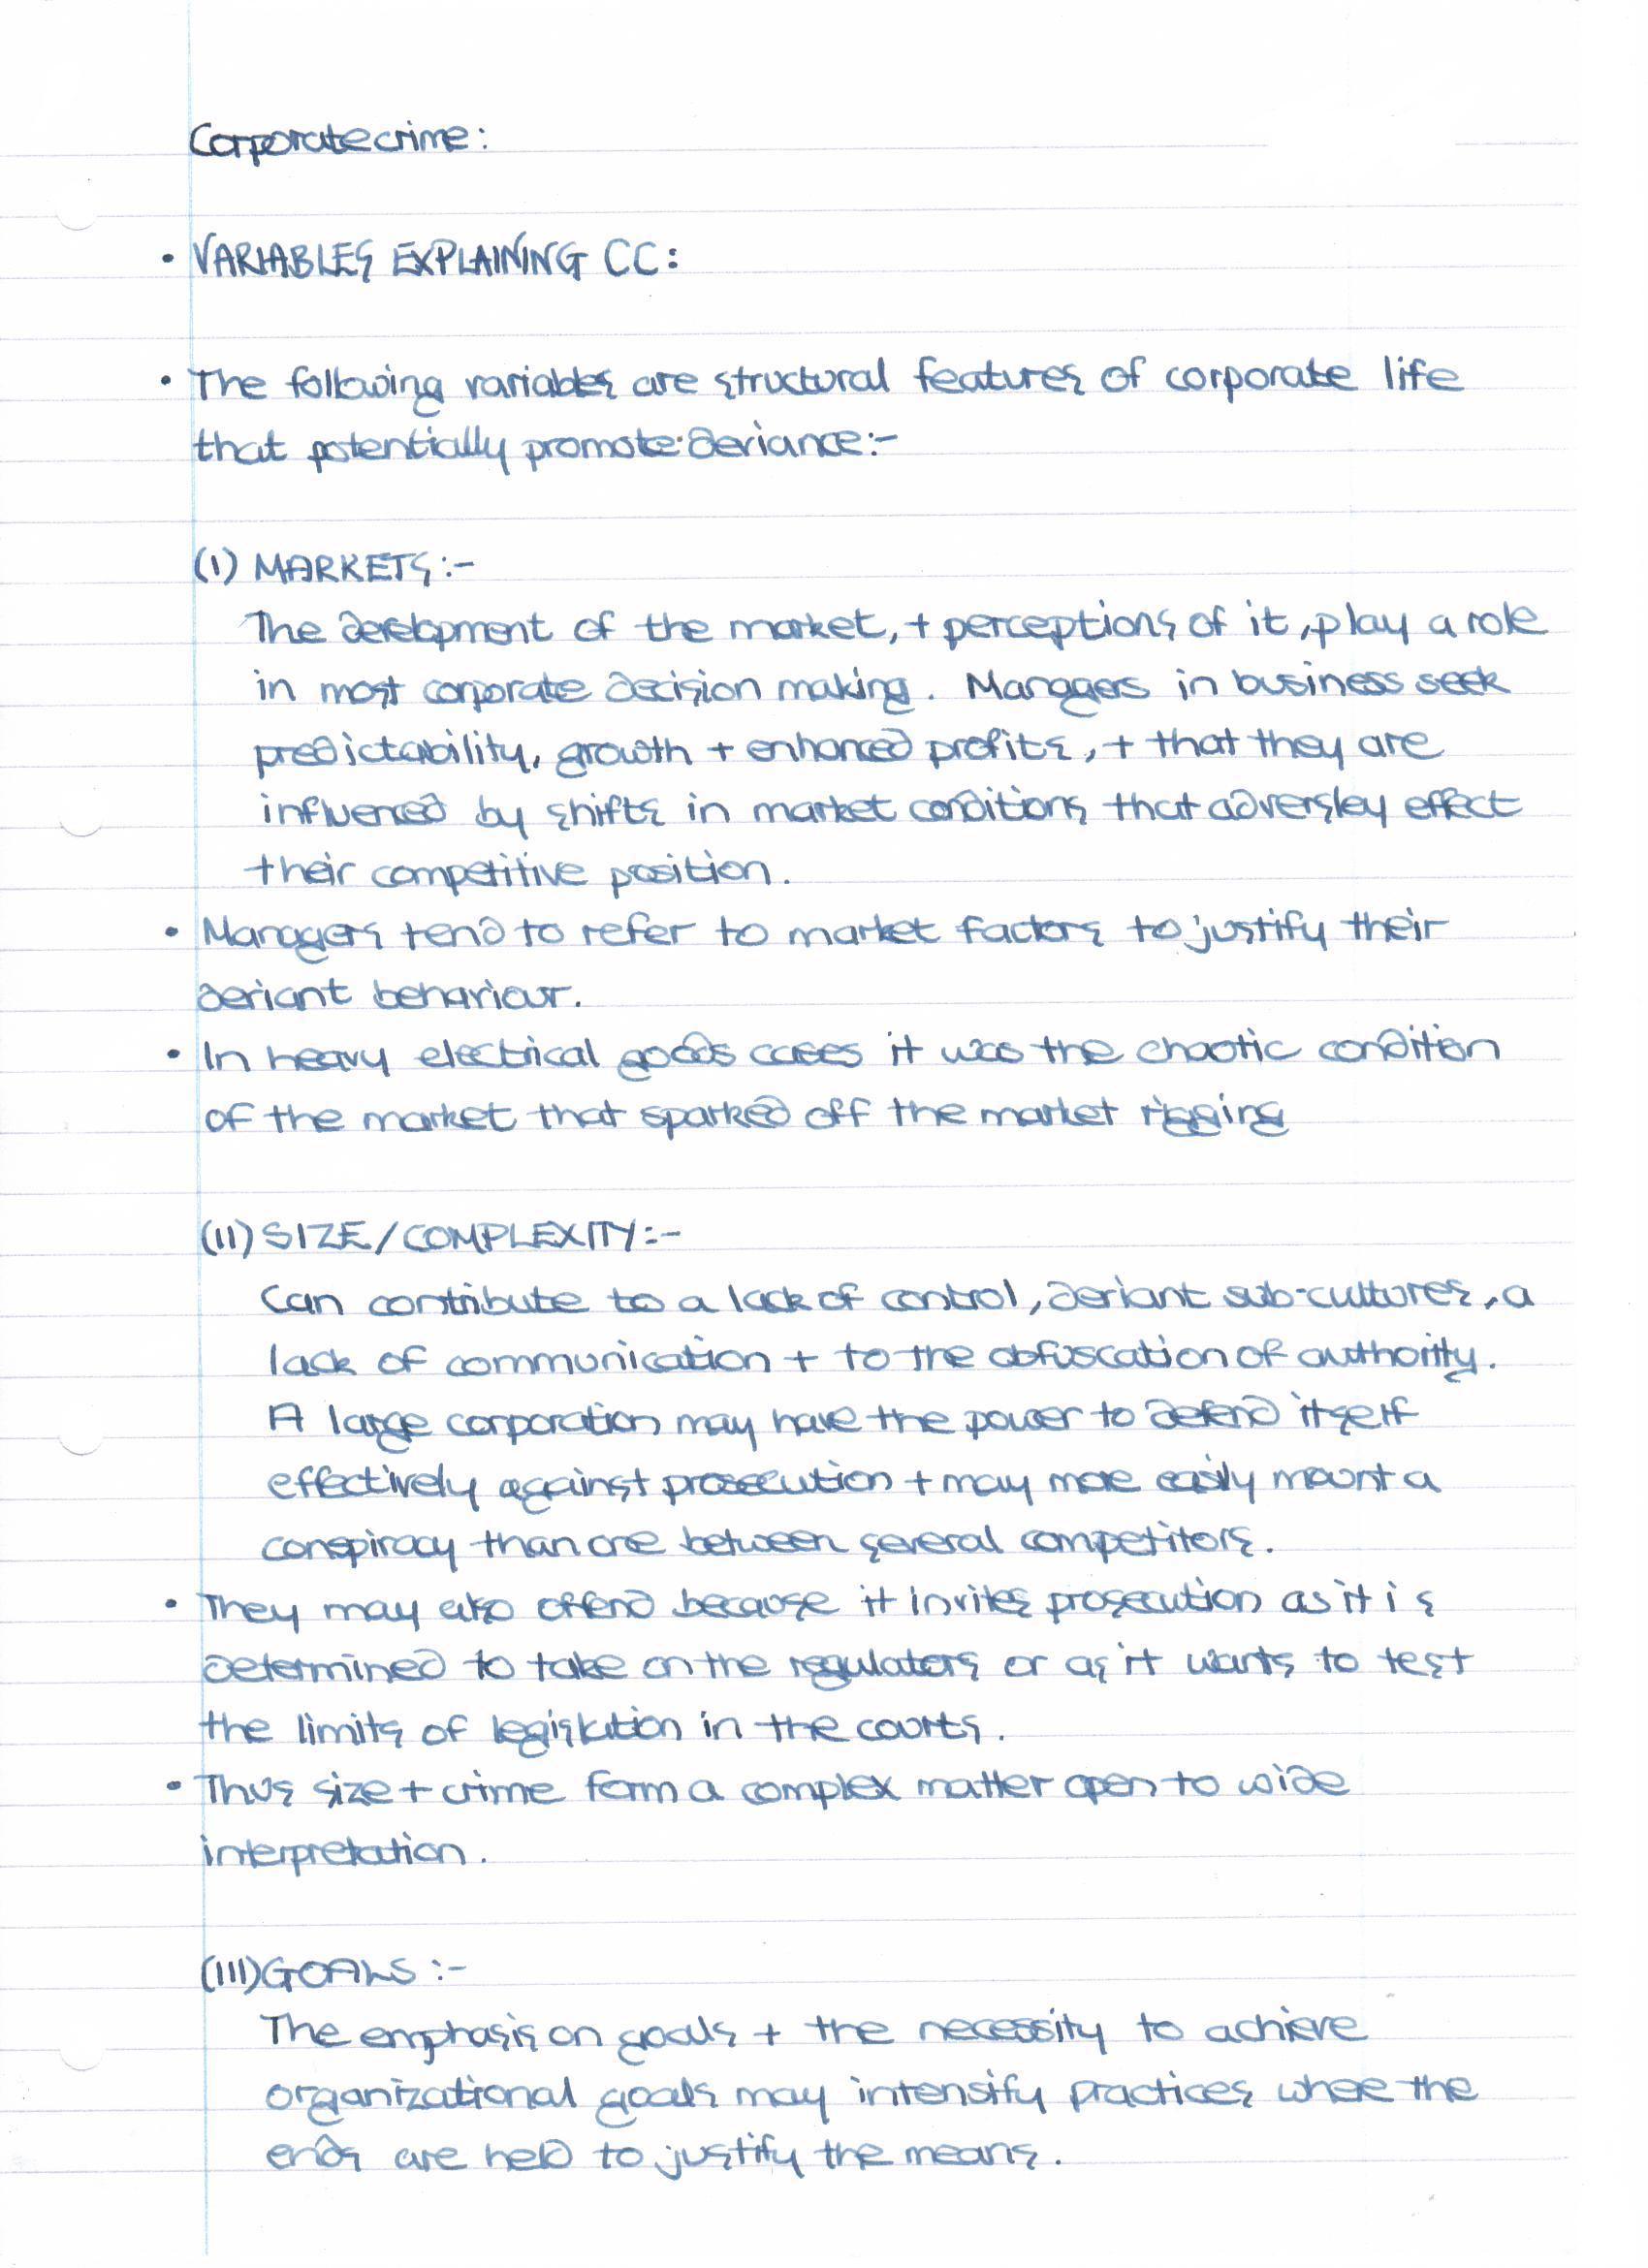 Corporate crime:
• VARIABLES EXPLAINING CC:
• The following variables are structural features of corporate life
that potentially promote deviance:-
(I) MARKETS:-
The development of the market, + perceptions of it, play a role
in most corporate decision making. Managers in business seek
predictability, growth + enhanced profits, + that they are
influenced by shifts in market conditions that adversley effect
their competitive position.
• Managers tend to refer to market factors to justify their
deviant behaviour.
• In heavy electrical goods cases it was the chaotic condition
of the market that sparked off the market rigging
(II) SIZE/COMPLEXITY:-
Can contribute to a lack of control, deviant sub-cultures, a
lack of communication + to the obfuscation of authority.
A large corporation may have the power to defend itself
effectively against prosecution + may more easily mount a
conspiracy than one between several competitors.
• They may also offend because it invites prosecution as it is
determined to take on the regulators or as it wants to test
the limits of legislation in the courts.
• Thus size + crime form a complex matter open to wide
interpretation.
(III) GOALS :-
The emphasis on goals + the necessity to achieve
organizational goals may intensify practices where the
ends are held to justify the means.